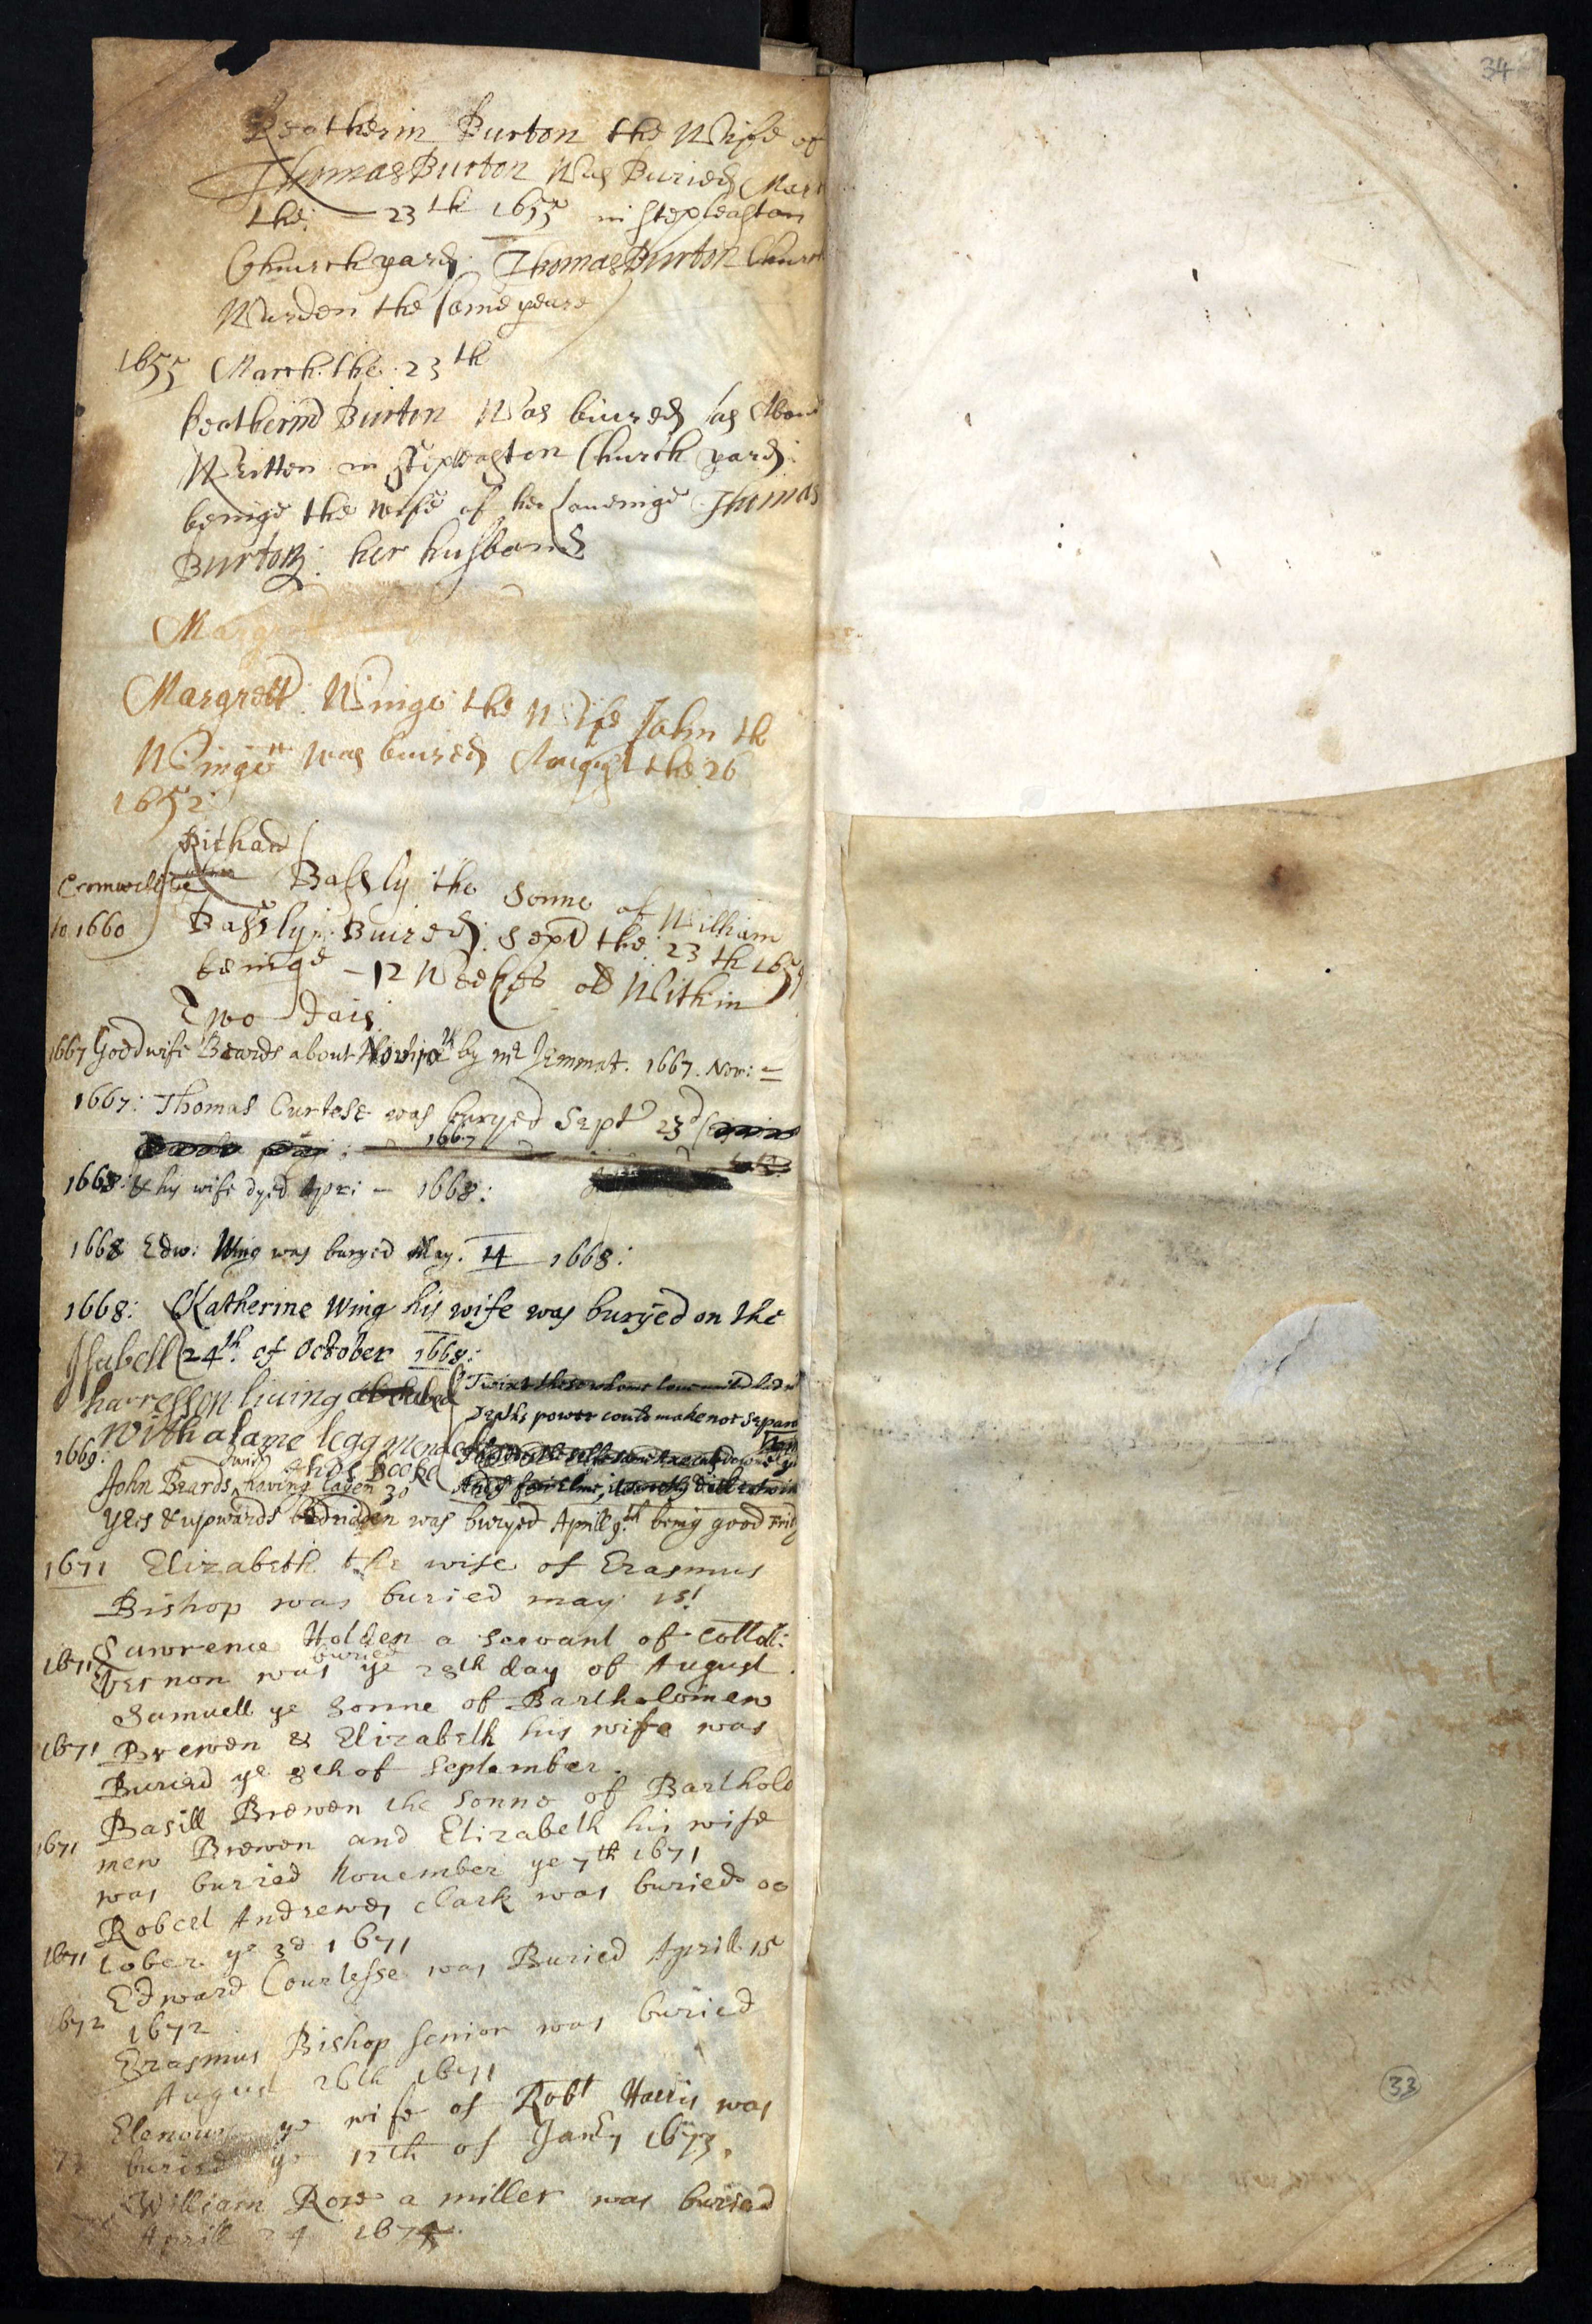 Keatherin Burton the Wife of
Thomas Burton Was Buried Marc
the: — 23th 1655 in Stepleaston
Church yard: Thomas Burton Church
Warden the same yeare
1655 March. the 23th
Keatherine Burton Was buired as Aboue
Written in Stepleaston Church yard:
beinge the wife of her loueinge Thomas
Burton: her husband
Mar
Margrett Winge the Wife John th
Winge Was buired August the 26
1652
Richard
Cromwell
Bassly the Sonne of William
to 1660 Bassly: Buired: Sept the: 23th 165
beinge — 12 Weekes old Within
Two dais
1667 Goodwife Beards about Novbr 10th by mr Jemmat. 1667. Nov: –
1667: Thomas Curtese was buryed Sept 23d
1667
1668: & his wife dyed Apri – 1668:
1668 Edw: Wing was buryed May. 14 1668:
1668: Katherine Wing his wife was buryed on the
24th. of October 1668:
Isabell
harresson liuing
With a lame legg
Twixt those whome loue
Deaths power could make not separa
And booke
1669:
John Beards having layen 30
yers & upwards bedridden was buryed Aprill 9th being good Frid
1671 Elizabeth the wife of Erasmus
Bishop was buried may 15!
Lawrence Holden a servant of Collol:
buried
1671 Vernon was ye 28th day of August.
Samuell ye Sonne of Bartholomew
1671 Brewen & Elizabeth his wife was
Buried ye 8th of September.
Basill Brewen the Sonne of Bartholo
1671 mew Brewen and Elizabeth his wife
was buried Nouember ye 7th 1671
Robert Andrewes Clark was buried oc
1671 tober ye 3d 1671
Edward Courtesse was Buried Aprill 15
1672 1672
Erasmus Bishop senior was buried
August 26th 1671
Elenour ye wife of Robt Harris was
73 buried ye 12th of Janry 1673.
William Rose a miller was buried
Aprill 24 167
34
33